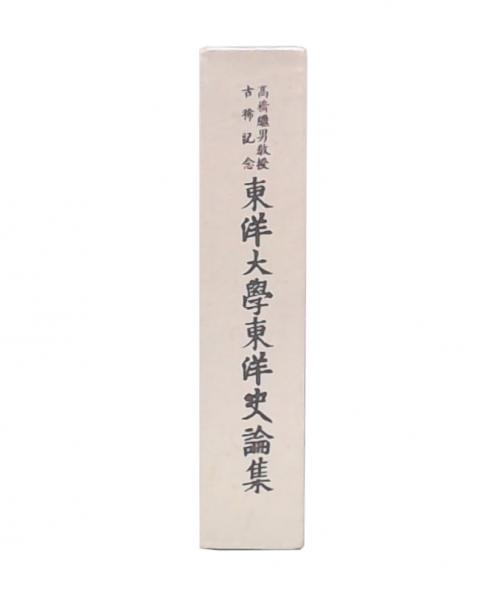 高橋繼男教授
古稀記念
東洋大學東洋史論集